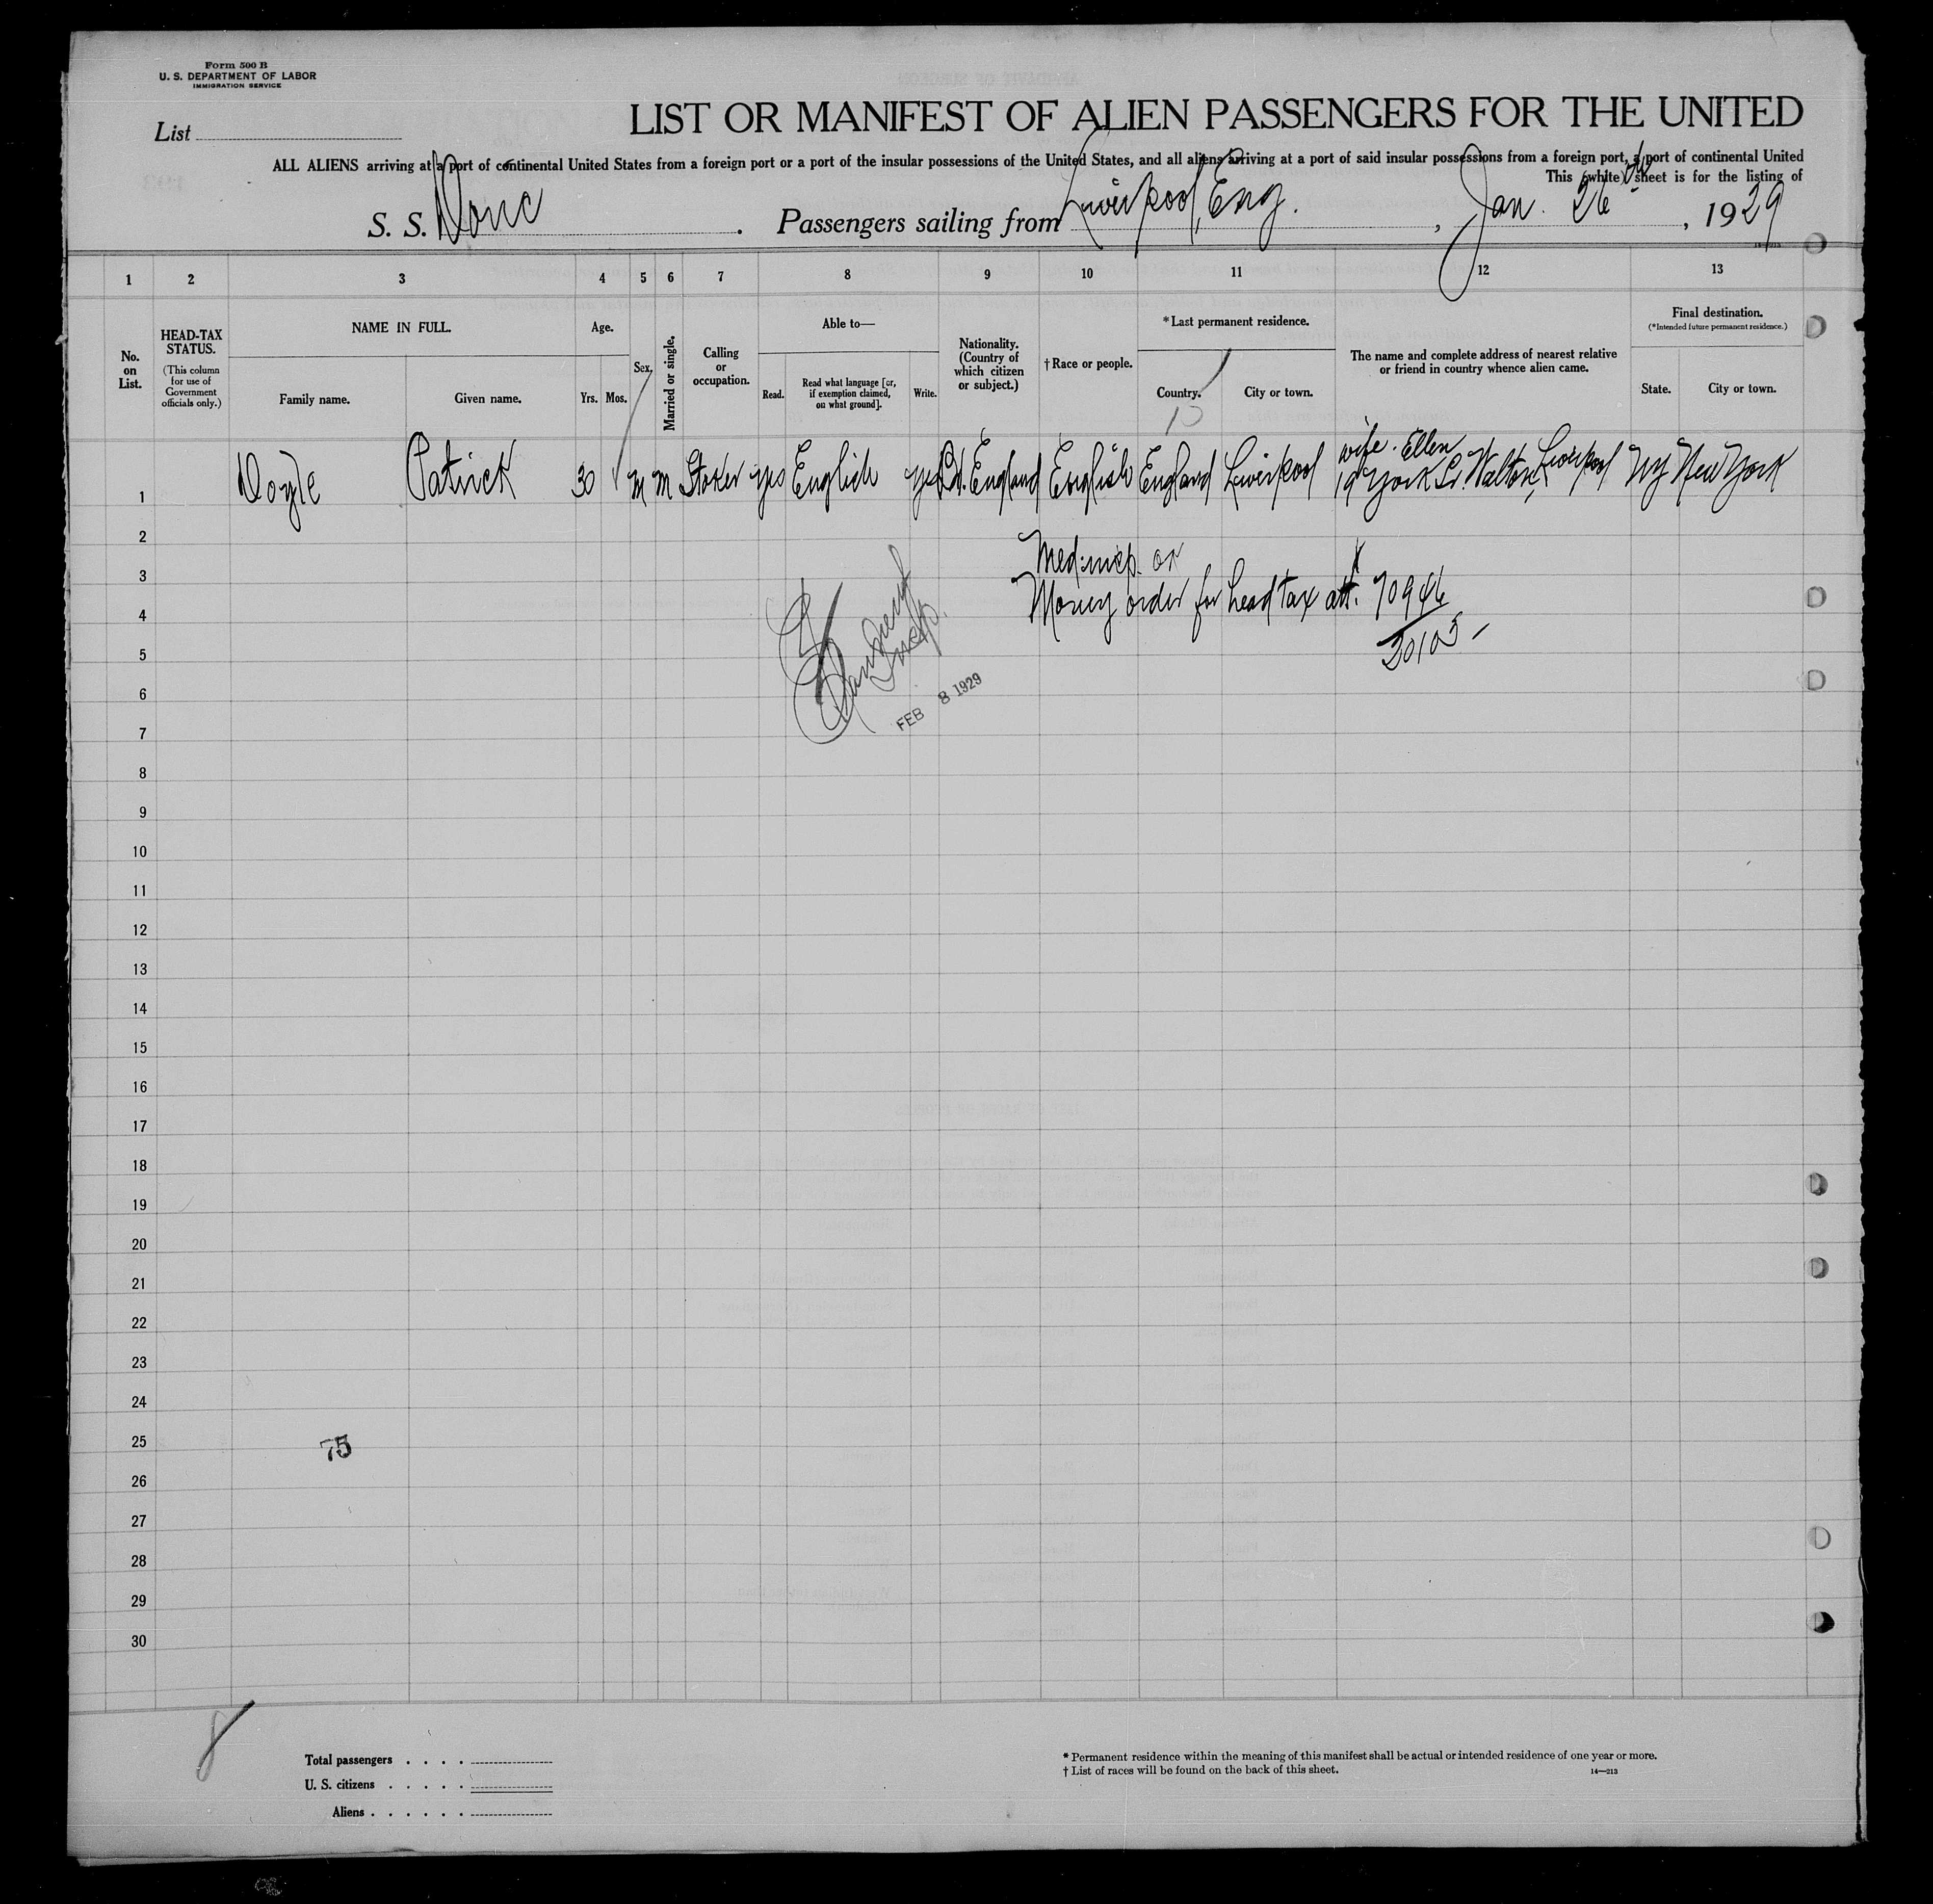 Form 500 B
U. S. DEPARTMENT OF LABOR
IMMIGRATION SERVICE
List
LIST OR MANIFEST OF ALIEN PASSENGERS FOR THE UNITED
ALL ALIENS arriving at a port of continental United States from a foreign port or a port of the insular possessions of the United States, and all aliens arriving at a port of said insular possessions from a foreign port, a port of continental United
This (white) sheet is for the listing of
S. S. Doric . Passengers sailing from Liverpool, Eng. , Jan. 26th , 1929
1 2 3 4 5 6 7 8 9 10 11 12 13
No. on List.
HEAD-TAX STATUS.
(This column for use of Government officials only.)
NAME IN FULL.
Family name. Given name.
Age.
Yrs. Mos.
Sex.
Married or single.
Calling or occupation.
Able to—
Read. Read what language [or, if exemption claimed, on what ground]. Write.
Nationality. (Country of which citizen or subject.)
† Race or people.
* Last permanent residence.
Country. City or town.
The name and complete address of nearest relative or friend in country whence alien came.
Final destination.
(*Intended future permanent residence.)
State. City or town.
10
wife. Ellen
1 Doyle Patrick 30 m m Stoker yes English yes England English England Liverpool 19 York St. Walton, Liverpool NY New York
2
Med. insp. or
3
Money order for head tax att. 70946
4
30105
5
6
FEB 8 1929
7
8
9
10
11
12
13
14
15
16
17
18
19
20
21
22
23
24
25
75
26
27
28
29
30
8
Total passengers . . . .
U. S. citizens . . . . .
Aliens . . . . . .
* Permanent residence within the meaning of this manifest shall be actual or intended residence of one year or more.
† List of races will be found on the back of this sheet.
14—213